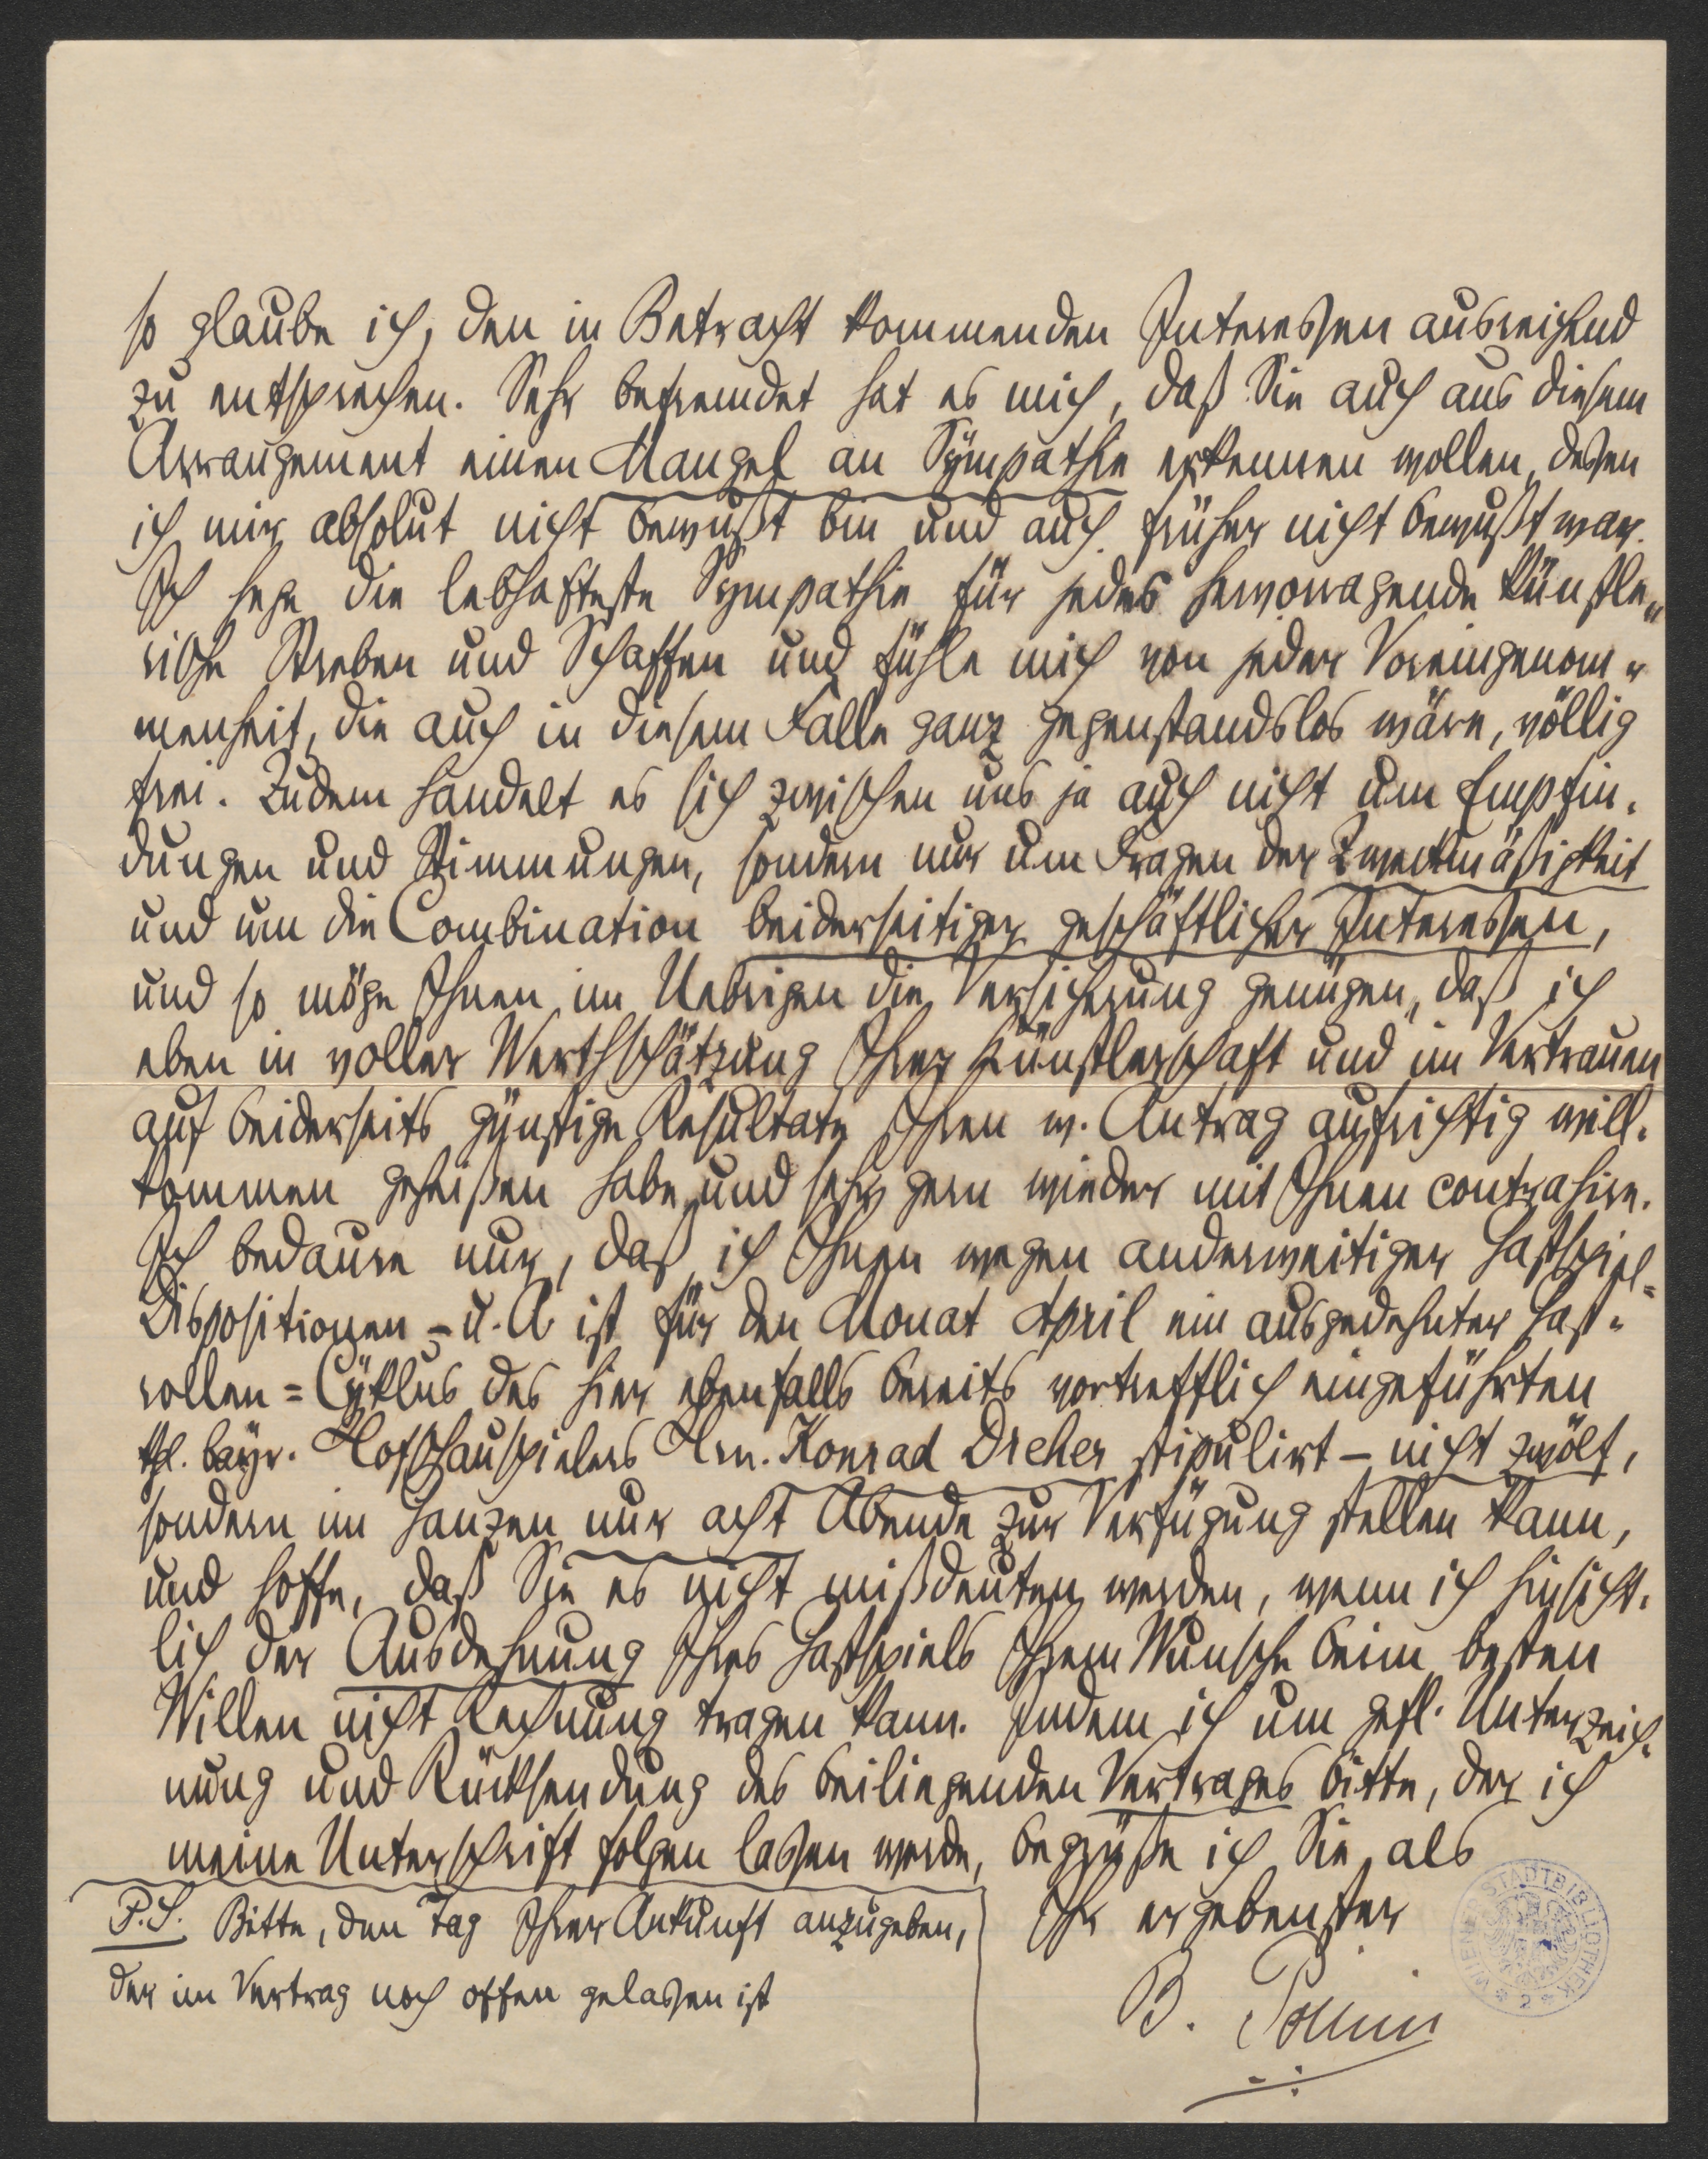 so glaube ich, den in Betracht kommenden Interessen ausreichend
zu entsprechen. Sehr befremdet hat es mich, daß Sie auch aus diesem
Arrangement einen Mangel an Sympathie erkennen wollen, dessen
ich mir absolut nicht bewußt bin und auch früher nicht bewußt war.
Ich hege die lebhafteste Sympathie für jedes hervorragende künstle„
rische Streben und Schaffen und fühle mich von jeder Voreingenom„
menheit, die auch in diesem Falle ganz gegenstandslos wäre, völlig
frei. Zudem handelt es sich zwischen uns ja auch nicht um Empfin„
dungen und Stimmungen, sondern nur um Fragen der Zweckmäßigkeit
und um die Combination beiderseitiger geschäftlicher Interessen,
und so möge Ihnen im Uebrigen die Versicherung genügen, daß ich
eben in voller Werthschätzung Ihrer Künstlerschaft und im Vertrauen
auf beiderseits günstige Resultate Ihren w. Antrag aufrichtig will„
kommen geheißen habe und sehr gern wieder mit Ihnen contrahire.
Ich bedaure nur, daß ich Ihnen wegen anderweitiger Gastspiel=
Dispositionen – u. A. ist für den Monat April ein ausgedehnter Gast„
rollen=Cyklus des hier ebenfalls bereits vortrefflich eingeführten
kgl. bayr. Hofschauspielers Hrn. Konrad Dreher stipulirt – nicht zwölf,
sondern im Ganzen nur acht Abende zur Verfügung stellen kann,
und hoffe, daß Sie es nicht mißdeuten werden, wenn ich hinsicht„
lich der Ausdehnung Ihres Gastspiels Ihrem Wunsche beim besten
Willen nicht Rechnung tragen kann. Indem ich um gefl. Unterzeich„
nung und Rücksendung des beiliegenden Vertrages bitte, der ich
meine Unterschrift folgen lassen werde, begrüße ich Sie als
Ihr ergebenster
B. Pollini
P.S. Bitte, den Tag Ihrer Ankunft anzugeben,
der im Vertrag noch offen gelassen ist
WIENER STADTBIBLIOTHEK
* 2 *